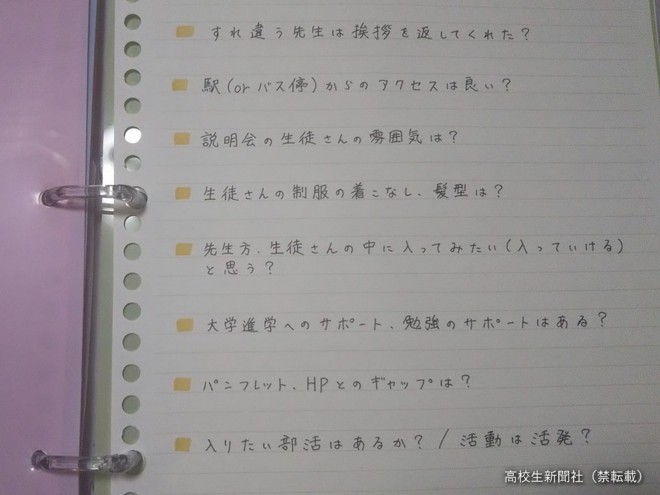 すれ違う先生は挨拶を返してくれた?
駅(orバス停)からのアクセスは良い?
説明会の生徒さんの雰囲気は?
生徒さんの制服の着こなし、髪型は?
先生方、生徒さんの中に入ってみたい(入っていける)
と思う?
大学進学へのサポート、勉強のサポートはある?
パンフレット、HPとのギャップは?
入りたい部活はあるか? / 活動は活発?
高校生新聞社(禁転載)